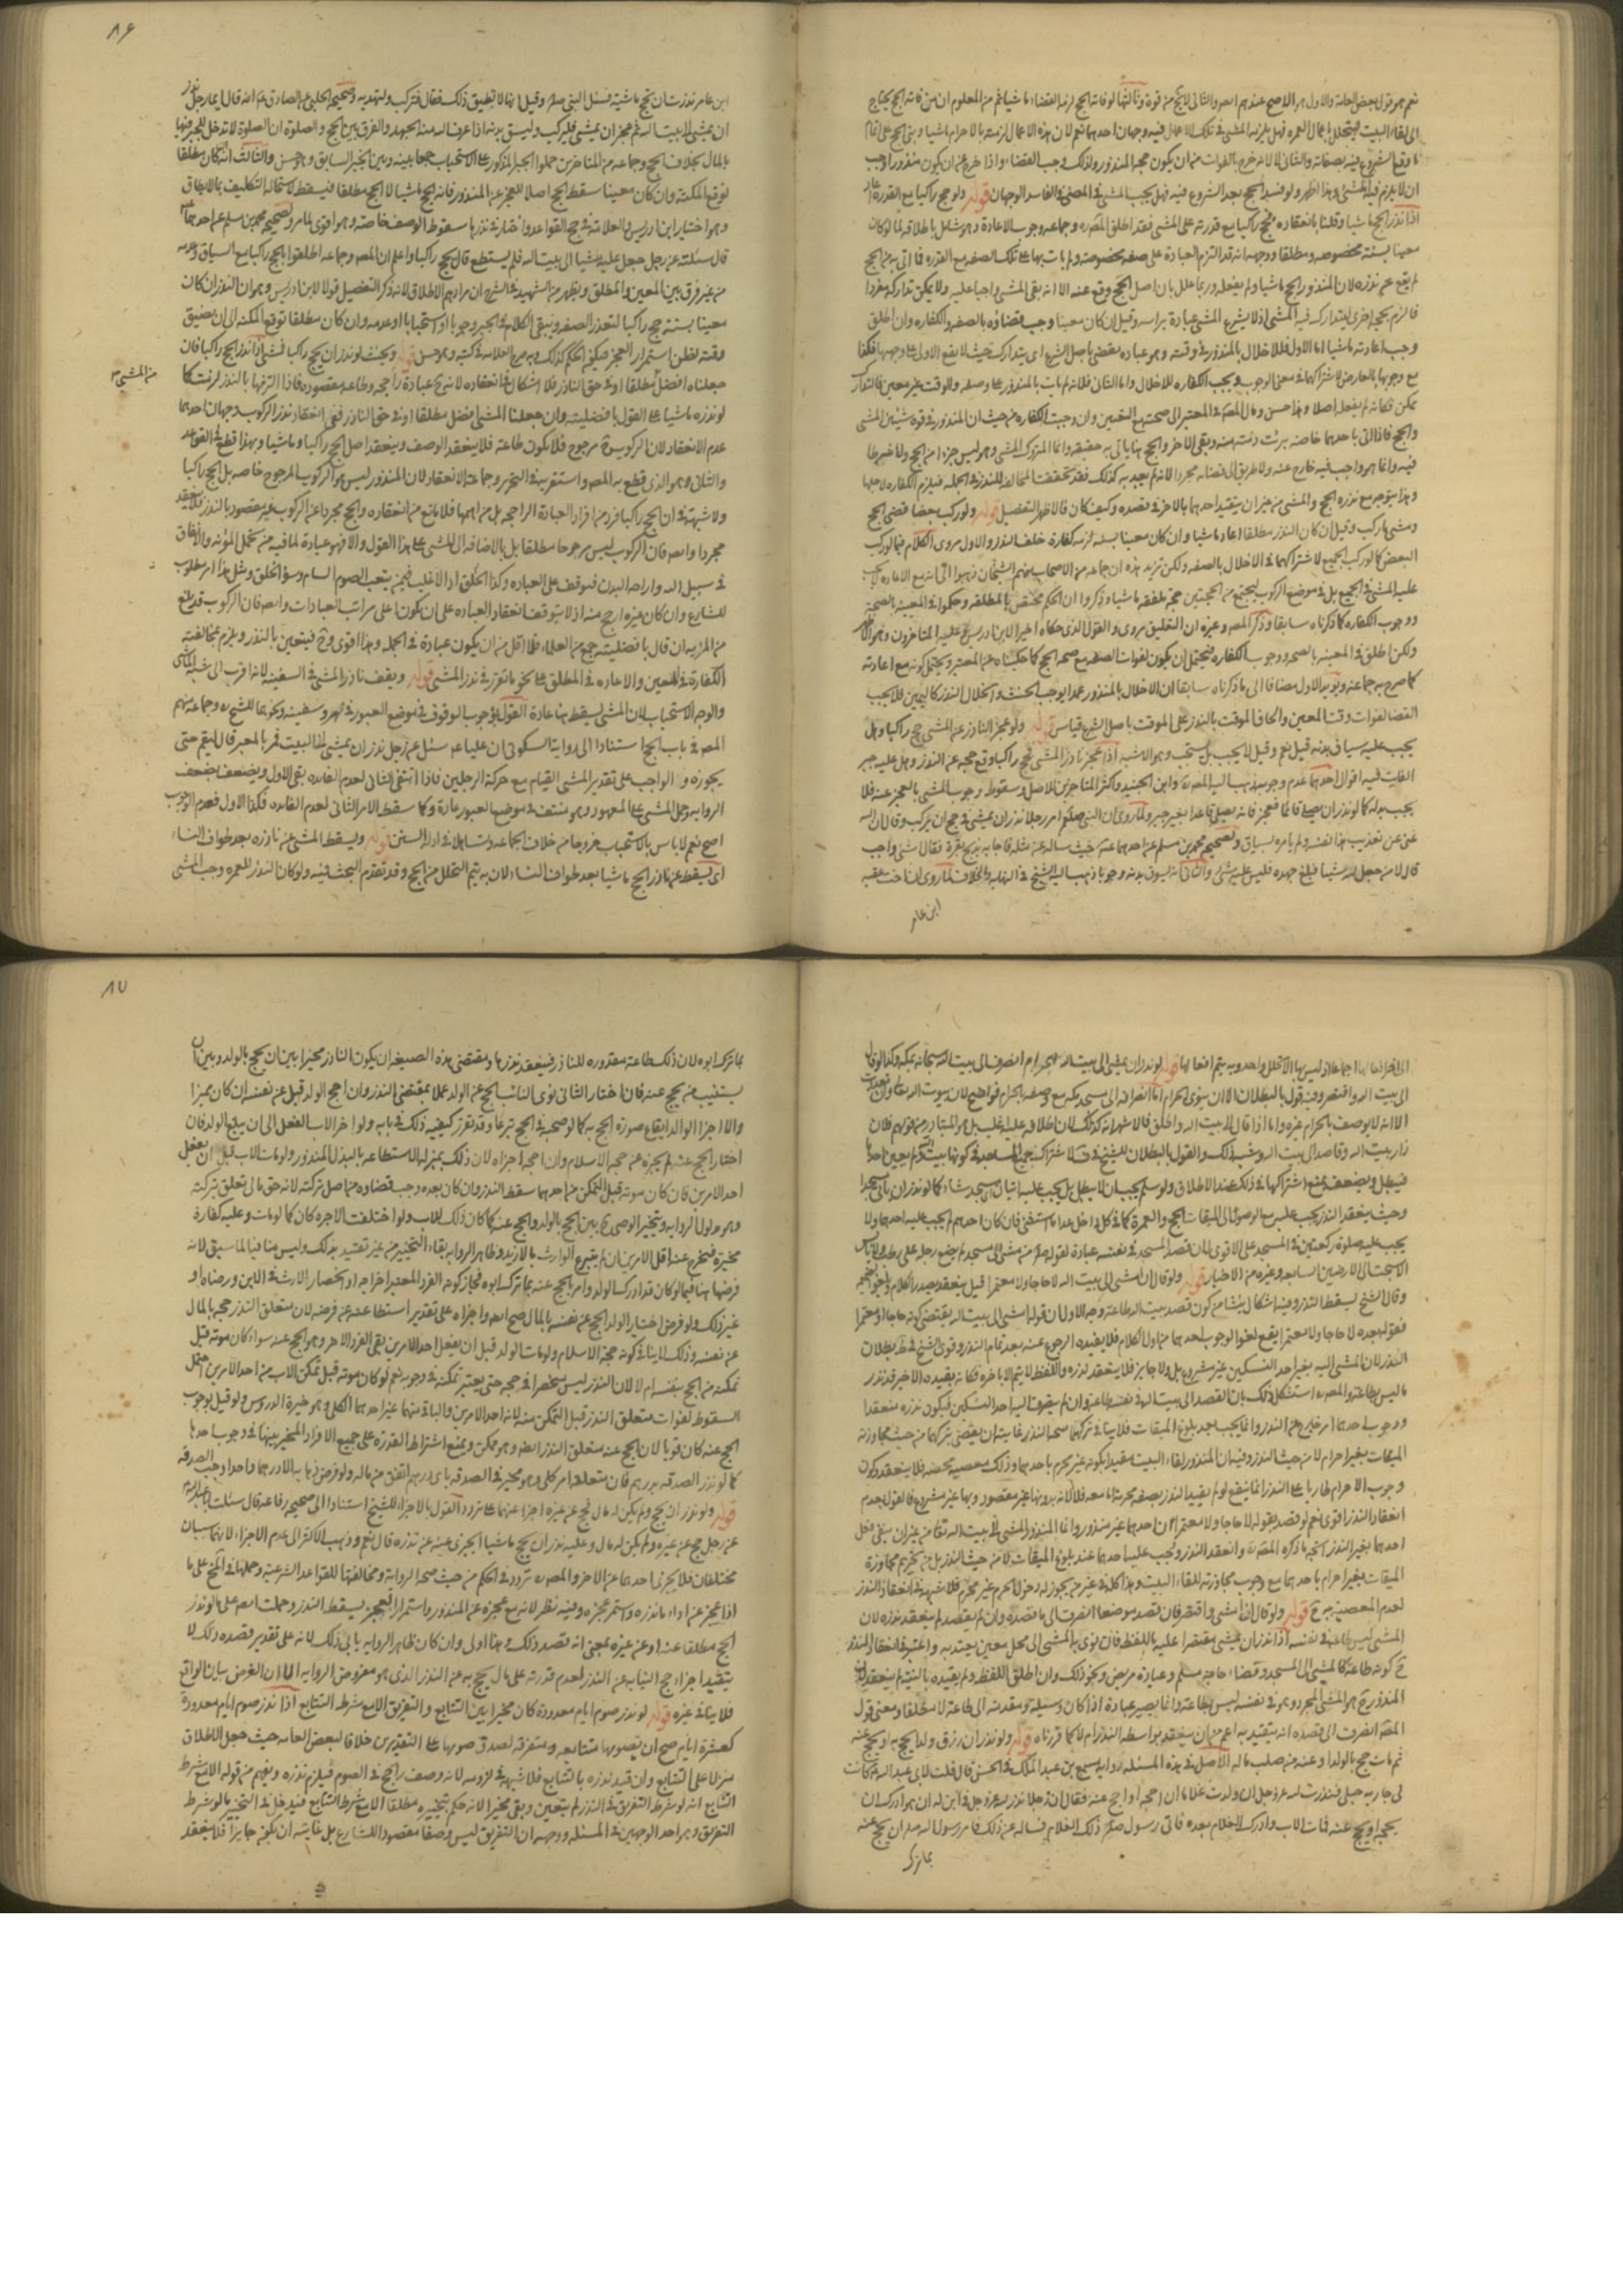 نعم هو قول بعض العامة والاول هو الاصح عندهم ايضا والثاني لا يخ من قوة وثالثها لو فاته الحج لزمه القضاء ماشيا ثم من المعلوم ان من فاته الحج يحتاج
الى لقاء البيت ليتحلل باعمال العمرة فهل يلزمه المشي في تلك الاعمال فيه وجهان احدهما نعم لان هذه الاعمال لزمته بالاحرام ماشيا
ان لا يلزم فيه المشي وهذا اظهر ولو فسد الحج بعد الشروع فيه فهل يجب المشي في المضي في الفاسد الوجهان قوله ولو حج راكبا مع القدرة اعاد
اذا نذر الحج ماشيا وقلنا بانعقاده فحج راكبا مع قدرته على المشي فقد اطلق المصره وجماعة وجوب الاعادة وهو شامل باطلاقه لما لو كان
معينا بسنة مخصوصة ومطلقا ووجهه انه قد التزم العبادة على صفة مخصوصة ولم يات بها على تلك الصفة مع القدرة فما اتى به من الحج
لم يقع عن نذره لان المنذور الحج ماشيا ولم يفعله وربما علل بان اصل الحج وقع عنه الا انه بقى المشي واجبا عليه ولا يمكن تداركه مفردا
فالزم بحجة اخرى ليتدارك فيه المشي اذ لا يشرع المشي عبادة براسه وقيل ان كان معينا وجب قضاؤه بالصفة والكفارة وان اطلق
وجب اعادته ماشيا اما الاول فللاخلال بالمنذور في وقته وهو عبادة تقضى باصل الشرع
ممكن فكانه لم يفعله اصلا وهذا حسن ومال المصره في المعتبر الى صحته مع التعيين وان وجبت الكفارة من حيث ان المنذور في قوة شيئين المشي
والحج فاذا اتى باحدهما خاصة برئت ذمته منه وبقى الاخر والحج هنا ياتي به حقيقة وانما المتروك المشي وهو ليس جزءا من الحج ولا شرطا
فيه وانما هو واجب فيه خارج عنه ولا طريق الى قضائه مجردا لانه لم يتعبد به كذلك فقد تحققت المخالفة للنذر في الجملة فيلزم الكفارة لاجلها
وهذا يتوجه مع نذره الحج والمشي من غير ان يتقيد احدهما بالاخر في قصده وكيف كان فالاظهر التفصيل قوله ولو ركب بعضا قضى الحج
ومشى ما ركب وقيل ان كان النذر مطلقا اعاد ماشيا وان كان معينا بسنة لزمه كفارة خلف النذر والاول مروى الكلام فيما لو ركب
البعض كما لو ركب الجميع لاشتراكهما في الاخلال بالصفة ولكن تزيد هذه ان جماعة من الاصحاب منهم الشيخان ذهبوا الى انه مع الاعادة لا يجب
عليه المشي في الجميع بل في موضع الركوب ليجتمع من الحجتين حجة ملفقة ماشيا وذكروا ان الحكم مختص بالمطلقة وحكموا في المعينة بالصحة
ووجوب الكفارة كما ذكرناه سابقا وذكر المصره وغيره ان التلفيق مروى والقول الذي حكاه اخيرا لابن ادريس وعليه المتاخرون وهو الاظهر
ولكن اطلق في المعينة بالصحة ووجوب الكفارة فيحتمل ان يكون لفوات الصفة مع صحة الحج كما حكيناه عن المعتبر ويحتمل كونه مع اعادته
كما صرح به جماعة ويؤيد الاول مضافا الى ما ذكرناه سابقا ان الاخلال بالمنذور عمدا يوجب الحنث وانحلال النذر كاليمين فلا يجب
القضا لفوات وقت المعين والحاق الموقت بالنذر على الموقت باصل الشرع قياس قوله ولو عجز الناذر عن المشي حج راكبا وهل
يجب عليه سياق بدنة قيل نعم وقيل لا يجب بل يستحب وهو الاشبه اذا عجز ناذر المشي فحج راكبا وقع حجه عن النذر وهل عليه جبر
الفائت فيه اقوال احدها عدم وجوبه ذهب اليه المصره وابن الجنيد واكثر المتاخرين للاصل وسقوط وجوب المشي بالعجز عنه فلا
يجب بدله كما لو نذر ان يصلي قائما فعجز فانه يصلي قاعدا بغير جبر ولما روى ان النبي صلعم امر رجلا نذر ان يمشي في حج ان يركب وقال ان الله
غنى عن تعذيب هذا نفسه ولم يامره بسياق ولصحيحة محمد بن مسلم عن احدهما
قال لا من جعل لله شيئا فبلغ جهده فليس عليه شئ والثاني انه يسوق بدنة وجوبا ذهب اليه الشيخ في النهاية والخلاف لما روى ان اخت عقبة
ابن عامر
٨٦
ابن عامر نذرت ان تحج ماشية فسئل النبي صلعم وقيل انها لا تطيق ذلك فقال فلتركب ولتهد بدنة وصحيحة الحلبي عن الصادق عم انه قال ايما رجل نذر
ان يمشي الى بيت الله ثم عجز ان يمشي فليركب وليسق بدنة اذا عرف الله منه الجهد والفرق بين الحج والصلوة ان الصلوة لا تدخل للجبر فيها
بالمال بخلاف الحج وجماعة من المتاخرين حملوا الخبر المذكور على الاستحباب جمعا بينه وبين الخبر السابق وهو حسن والثالث انه ان كان مطلقا
توقع المكنة وان كان معينا سقط الحج اصلا للعجز عن المنذور فانه الحج ماشيا لا الحج مطلقا فيسقط لاستحالة التكليف بما لا يطاق
وهو اختيار ابن ادريس والعلامة في حج القواعد واختار في نذرها سقوط الوصف خاصة وهو اقوى لما مر ولصحيحة محمد بن مسلم عن احدهما ع
قال سئلته عن رجل جعل عليه مشيا الى بيت الله فلم يستطع قال يحج راكبا واعلم ان المصره وجماعة اطلقوا الحج راكبا مع السياق وعدمه
من غير فرق بين المعين والمطلق ويظهر من الشهيد في الشرح ان مرادهم الاطلاق لانه ذكر التفصيل قولا لابن ادريس وهو ان النذر ان كان
معينا بسنة حج راكبا لتعذر الصفة ويبقى الكلام في الجبر وجوبا او استحبابا او عدمه وان كان مطلقا توقع المكنة الى ان يضيق
وقته لظن استمرار العجز فيكون الحكم كذلك وبه صرح العلامة في كتبه وهو حسن قوله ويحنث لو نذر ان يحج راكبا فمشى اذا نذر الحج راكبا فان
من المشي م
جعلنا افضل مطلقا او في حق الناذر فلا اشكال في انعقاده لانه ح عبادة راجحة وطاعة مقصودة فاذا التزمها بالنذر لزمت كما
لو نذره ماشيا على القول بافضليته وان جعلنا المشي افضل مطلقا او في حق الناذر ففي انعقاد نذر الركوب وجهان احدهما
عدم الانعقاد لان الركوب ح مرجوح فلا يكون طاعة فلا ينعقد الوصف وينعقد اصل الحج راكبا وماشيا وبهذا قطع في القواعد
والثاني وهو الذي قطع به المصره واستقربه في التحرير وجماعة الانعقاد لان المنذور ليس هو الركوب المرجوح خاصة بل الحج راكبا
ولا شبهة في ان الحج راكبا فرد من افراد العبادة الراجحة بل من اهمها فلا مانع من انعقاده والحج مجردا عن الركوب غير مقصود بالنذر فلا ينعقد
مجردا وايضا فان الركوب ليس مرجوحا مطلقا بل بالاضافة الى المشي على هذا القول والا فهو عبادة لما فيه من تحمل المؤنة والانفاق
في سبيل الله
للشارع وان كان غيره ارجح منه اذ لا يتوقف انعقاد العبادة على ان يكون اعلى مراتب العبادات وايضا فان الركوب قد بلغ
من المزية ان قال بافضليته جمع من العلماء فلا اقل من ان يكون عبادة في الجملة وهذا اقوى وح فيتعين بالنذر ويلزم بمخالفته
الكفارة في المعين والاعادة في المطلق على نحو ما تقرر في نذر المشي قوله ويقف ناذر المشي في السفينة لانه اقرب الى شبه الماشي
والوجه الاستحباب لان المشي يسقط هنا عادة القول بوجوب الوقوف في موضع العبور في نهر وسفينة ونحوهما للشيخ ره وجماعة منهم
المصره في باب الحج استنادا الى رواية السكوني ان عليا عم سئل عن رجل نذر ان يمشي الى البيت فمر بالمعبر قال ليقم حتى
يجوزه و الواجب على تقدير المشي القيام مع حركة الرجلين فاذا انتفى الثاني لعدم الفائدة بقى الاول ويضعف بضعف
الرواية وحمل المشي على المعهود وهو منتف في موضع العبور عادة وكما سقط الامر الثاني لعدم الفائدة فكذا الاول فعدم الوجوب
اصح نعم لا باس بالاستحباب خروجا من خلاف الجماعة وتساهلا في ادلة السنن قوله ويسقط المشي عن ناذره بعد طواف النساء
اى يسقط عن ناذر الحج ماشيا بعد طواف النساء لان به يتم التحلل من الحج وقد تقدم البحث فيه ولو كان النذر للعمرة وجب المشي
قوله لو نذر ان يمشي الى بيت الله الحرام انصرف الى بيت الله سبحانه بمكة وكذا لو قال
الى بيت الله واقتصر وفيه قول بالبطلان الا ان ينوى الحرام اما انصرافه الى مسجد مكة مع وصفه بالحرام فواضح لان بيوت الله تعالى وان تعددت
الا انه لا يوصف بالحرام غيره واما اذا قال الى بيت الله واطلق فالاشهر انه كذلك لان اطلاقه عليه اغلب بل هو المتبادر من قولهم فلان
زار بيت الله وقاصد الى بيت الله وشبه ذلك والقول بالبطلان للشيخ في ف لاشتراك جميع المساجد في كونها بيت الله ولم يعين احدها
فيبطل ويضعف بمنع اشتراكها في ذلك عند الاطلاق ولو سلم يجب ان لا يبطل بل يجب عليه اتيان اى مسجد شاء كما لو نذر ان ياتى مسجدا
وحيث ينعقد النذر يجب عليه مع الوصول الى الميقات الحج والعمرة كما في كل داخل عدا ما استثنى فان كان احدهم لم يجب عليه احدهما ولا
يجب عليه صلوة ركعتين في المسجد على الاقوى لان قصد المسجد في نفسه عبادة لقوله صلعم من مشى الى مسجد لم يضع رجله على رطب ولا يابس
الا سبحت له الى الارضين السابعة وغيره من الاخبار قوله ولو قال ان امشي الى بيت الله لا حاجا ولا معتمرا قيل ينعقد بصدر الكلام ويلغو الضميمة
وقال الشيخ يسقط النذر وفيه اشكال ينشا من كون قصد بيت الله طاعة وجه الاول ان قوله امشي الى بيت الله يقتضى كونه حاجا او معتمرا
فقوله بعده لا حاجا ولا معتمرا يقع لغوا لوجوب احدهما من اول الكلام فلا يفيده الرجوع عنه بعد تمام النذر وقوى الشيخ في ط بطلان
النذر لان المشي اليه بغير احد النسكين غير مشروع بل ولا جايز فلا ينعقد نذره واللفظ لا يتم الا باخره فكانه بقيده الاخير قد نذر
ما ليس بطاعة والمصره استشكل ذلك بان القصد الى بيت الله في نفسه طاعة وان لم يضف اليه احد النسكين فيكون نذره منعقدا
ووجوب احدهما امر خارج عن النذر وانما يجب بعد بلوغ الميقات فلا ينافي تركهما صحة النذر غايته ان يعصى بتركهما من حيث مجاوزته
الميقات بغير احرام لا من حيث النذر وفيه ان المنذور لقاء البيت مقيدا بكونه غير محرم باحدهما وذلك معصية محضة فلا ينعقد وكون
وجوب الاحرام طاريا على النذر انما ينفع لو لم يقيد النذر بصفة محرمة
انعقاد النذر اقوى نعم لو قصد بقوله لا حاجا ولا معتمرا ان احدهما غير منذور وانما المنذور المشي الى بيت الله تعالى من غير ان ينفى فعل
احدهما بغير النذر اتجه ما ذكره المصره وانعقد النذر ويجب عليه احدهما عند بلوغ الميقات لا من حيث النذر بل من تحريم مجاوزة
الميقات بغير احرام باحدهما مع وجوب مجاوزته للقاء البيت وهذا كله في غير من يجوز له دخول الحرم غير محرم فلا شبهة في انعقاد النذر
لعدم المعصية ح قوله ولو قال ان امشي واقتصر فان قصد موضعا انصرف الى ما قصده وان لم يقصد لم ينعقد نذره لان
المشي ليس طاعة في نفسه اذا نذر ان يمشي مقتصرا عليه باللفظ فان نوى به المشي الى محل معين يعتد به واعتبر في انعقاد النذر
ح كونه طاعة كالمشي الى المسجد وقضاء حاجة مسلم وعيادة مريض ونحو ذلك وان اطلق اللفظ ولم يقيده بالنية لم ينعقد لان
المنذور ح هو المشي المجرد وهو في نفسه ليس بطاعة وانما يصير عبادة اذا كان وسيلة ومقدمة الى طاعة لا مطلقا ومعنى قول
المصره انصرف الى قصده انه يتقيد به اعم من ان ينعقد بواسطة النذر ام لا كما قررناه قوله ولو نذر ان رزق ولدا يحج به او يحج عنه
ثم مات حج بالولد او عنه من صلب ماله الاصل في هذه المسئلة رواية مسمع بن عبد الملك في الحسن قال قلت لابى عبد الله عم كانت
لى جارية حبلى فنذرت لله عز وجل ان ولدت غلاما ان احجه او احج عنه فقال ان رجلا نذر لله عز وجل في ابن له ان هو ادرك ان
يحجه او يحج عنه فمات الاب وادرك الغلام بعده فاتى رسول الله صلعم ذلك الغلام فساله عن ذلك فامر رسول الله صلعم ان يحج عنه
مما ترك
٨٧
مما ترك ابوه لان ذلك طاعة مقدورة للناذر فينعقد نذرها ومقتضى هذه الصيغة ان يكون الناذر مخيرا بين ان يحج بالولد وبين ان
يستنيب من يحج عنه فان اختار الثاني نوى النائب الحج عن الولد عملا بمقتضى النذر وان احج الولد قبل عن نفسه ان كان مميزا
والا اجزا الوالد ايقاع صورة الحج به كما لو صحبه في الحج تبرعا وقد تقرر كيفية ذلك في بابه ولو اخر الاب الفعل الى ان بلغ الولد فان
اختار الحج عنه لم يجزه عن حجة الاسلام وان احجه اجزاه لان ذلك بمنزلة الاستطاعة بالبذل المنذور ولو مات الاب قبل ان يفعل
احد الامرين فان كان موته قبل التمكن من احدهما سقط النذر وان كان بعده وجب قضاؤه من اصل تركته لانه حق مالى تعلق بتركته
وهو مدلول الرواية ويتخير الوصى ح بين الحج بالولد والحج عنه كما كان ذلك للاب ولو اختلفت الاجرة كان كما لو مات وعليه كفارة
مخيرة فيخرج عنه اقل الامرين ان لم يتبرع الوارث بالازيد وظاهر الرواية بقاء التخيير من غير تقييد بذلك وليس منافيا لما سبق لانه
فرضها هنا فيما لو كان قد ادرك الولد وامر بالحج عنه مما ترك ابوه فجاز كونه الفرد المعتبر اخراجه او انحصار الارث في الابن ورضاه او
غير ذلك ولو فرض اختيار الولد الحج عن نفسه بالمال صح ايضا واجزاه على تقدير استطاعته عن فرضه لان متعلق النذر حجه بالمال
عن نفسه وذلك لا ينافي كونه حجة الاسلام ولو مات الولد قبل ان يفعل احد الامرين بقى الفرد الاخر وهو الحج عنه سواء كان موته قبل
تمكنه من الحج بنفسه ام لا لان النذر ليس منحصرا في حجه حتى يعتبر تمكنه في وجوبه نعم لو كان موته قبل تمكن الاب من احد الامرين احتمل
السقوط لفوات متعلق النذر قبل التمكن منه لانه احد الامرين والباقى منهما غير احدهما الكلي وهو خيرة الدروس ولو قيل بوجوب
الحج عنه كان قويا لان الحج عنه متعلق النذر ايضا وهو ممكن ويمنع اشتراط القدرة على جميع الافراد المخير بينها في وجوب احدها
كما لو نذر الصدقة بدرهم فان متعلقه امر كلي وهو مخير في الصدقة باى درهم اتفق من ماله ولو فرض ذهابه الا درهما واحدا وجب الصدقة
قوله ولو نذر ان يحج ولم يكن له مال فحج عن غيره اجزا عنهما على تردد القول بالاجزاء للشيخ استنادا الى صحيحة رفاعة قال سئلت ابا عبد الله
عن رجل حج عن غيره ولم يكن له مال وعليه نذر ان يحج ماشيا ايجزى عنه عن نذره قال نعم وذهب الاكثر الى عدم الاجزاء لانهما سببان
مختلفان فلا يجزى احدهما عن الاخر والمصره تردد في الحكم من حيث صحة الرواية ومخالفتها للقواعد الشرعية وحملها في المخ على ما
اذا عجز عن اداء ما نذره واستمر عجزه وفيه نظر لانه مع عجزه عن المنذور واستمرار العجز يسقط النذر وحملت ايضا على ما لو نذر
الحج مطلقا عنه او عن غيره بمعنى انه قصد ذلك وهذا اولى وان كان ظاهر الرواية يابى ذلك لانه على تقدير قصده ذلك لا
يتقيد اجزاء حج النيابة عن النذر لعدم قدرته على مال يحج به عن النذر الذي هو مفروض الرواية الا ان الغرض بيان الواقع
فلا ينافي غيره قوله لو نذر صوم ايام معدودة كان مخيرا بين التتابع والتفريق الا مع شرط التتابع اذا نذر صوم ايام معدودة
كعشرة ايام صح ان يصومها متتابعة ومتفرقة لصدق صومها على التقديرين خلافا لبعض العامة حيث حمل الاطلاق
منزلا على التتابع وان قيد نذره بالتتابع فلا شبهة في لزومه لانه وصف راجح في الصوم فيلزم نذره ويفهم من قوله الا مع شرط
التتابع انه لو شرط التفريق في النذر لم يتعين وبقى مخيرا لانه حكم بتخييره مطلقا الا مع شرط التتابع فيدخل في التخيير ما لو شرط
التفريق وهو احد الوجهين في المسئلة ووجهه ان التفريق ليس وصفا مقصودا للشارع بل غايته ان يكون جايزا فلا ينعقد